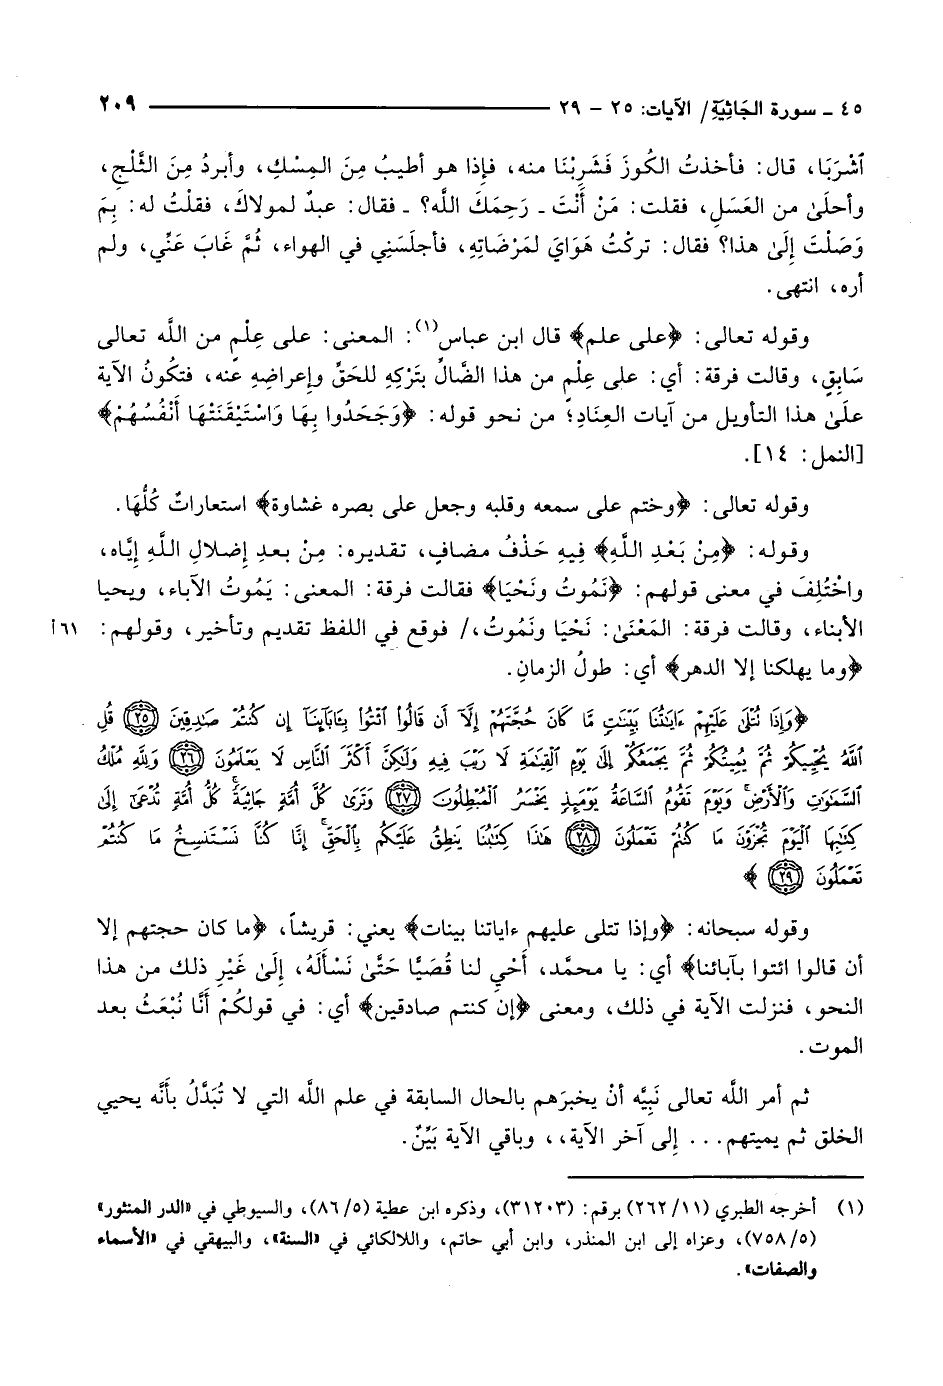 ٤٥ ـ سورة الجَاثِيَةِ/ الآيات: ٢٥ - ٢٩ ٢٠٩
ٱشْرَبَا، قال: فأخذتُ الكُوزَ فَشَرِبْنَا منه، فإِذا هو أطيبُ مِنَ المِسْكِ، وأبردُ مِنَ الثَّلْجِ،
وأحلَىٰ من العَسَلِ، فقلت: مَنْ أَنْتَ ـ رَحِمَكَ اللَّه؟ ـ فقال: عبدٌ لمولاكَ، فقلْتُ له: بِمَ
وَصَلْتَ إِلَىٰ هذا؟ فقال: تركْتُ هَوَايَ لمَرْضَاتِهِ، فأجلَسَنِي في الهواء، ثُمَّ غَابَ عَنِّي، ولم
أره، انتهى.
وقوله تعالى: ﴿على علم﴾ قال ابن عباس(١): المعنى: على عِلْمٍ من اللَّه تعالى
سَابِقٍ، وقالت فرقة: أي: على عِلْمٍ من هذا الضَّالِّ بتَرْكِهِ للحَقِّ وإعراضِهِ عنه، فتكُونُ الآية
علَىٰ هذا التأويل من آيات العِنَادِ؛ من نحو قوله: ﴿وَجَحَدُوا بِهَا وَاسْتَيْقَنَتْهَا أَنْفُسُهُمْ﴾
[النمل: ١٤].
وقوله تعالى: ﴿وختم على سمعه وقلبه وجعل على بصره غشاوة﴾ استعاراتٌ كُلُّهَا.
وقوله: ﴿مِنْ بَعْدِ اللَّهِ﴾ فِيهِ حَذْفُ مضافٍ، تقديره: مِنْ بعدِ إضلالِ اللَّهِ إيَّاه،
واخْتُلِفَ في معنى قولهم: ﴿نَمُوتُ ونَحْيَا﴾ فقالت فرقة: المعنى: يَمُوتُ الآباء، ويحيا
الأبناء، وقالت فرقة: المَعْنَىٰ: نَحْيَا ونَمُوتُ،/ فوقع في اللفظ تقديم وتأخير، وقولهم: ٦١أ
﴿وما يهلكنا إلا الدهر﴾ أي: طولُ الزمانِ.
﴿وَإِذَا نُتْلَىٰ عَلَيْهِمْ ءَايَٰتُنَا بَيِّنَٰتٍ مَّا كَانَ حُجَّتَهُمْ إِلَّآ أَن قَالُوا۟ ٱئْتُوا۟ بِـَٔابَآئِنَآ إِن كُنتُمْ صَٰدِقِينَ ۝٢٥ قُلِ
ٱللَّهُ يُحْيِيكُمْ ثُمَّ يُمِيتُكُمْ ثُمَّ يَجْمَعُكُمْ إِلَىٰ يَوْمِ ٱلْقِيَٰمَةِ لَا رَيْبَ فِيهِ وَلَٰكِنَّ أَكْثَرَ ٱلنَّاسِ لَا يَعْلَمُونَ ۝٢٦ وَلِلَّهِ مُلْكُ
ٱلسَّمَٰوَٰتِ وَٱلْأَرْضِ وَيَوْمَ تَقُومُ ٱلسَّاعَةُ يَوْمَئِذٍ يَخْسَرُ ٱلْمُبْطِلُونَ ۝٢٧ وَتَرَىٰ كُلَّ أُمَّةٍ جَاثِيَةً كُلُّ أُمَّةٍ تُدْعَىٰٓ إِلَىٰ
كِتَٰبِهَا ٱلْيَوْمَ تُجْزَوْنَ مَا كُنتُمْ تَعْمَلُونَ ۝٢٨ هَٰذَا كِتَٰبُنَا يَنطِقُ عَلَيْكُم بِٱلْحَقِّ إِنَّا كُنَّا نَسْتَنسِخُ مَا كُنتُمْ
تَعْمَلُونَ ۝٢٩ ﴾
وقوله سبحانه: ﴿وإذا تتلى عليهم ءاياتنا بينات﴾ يعني: قريشاً، ﴿ما كان حجتهم إلا
أن قالوا ائتوا بآبائنا﴾ أي: يا محمَّد، أَحْيِ لنا قُصَيًّا حَتَّىٰ نَسْأَلَهُ، إلَىٰ غَيْرِ ذلك من هذا
النحو، فنزلت الآية في ذلك، ومعنى ﴿إن كنتم صادقين﴾ أي: في قولكُمْ أَنَّا نُبْعَثُ بعد
الموت.
ثم أمر اللَّه تعالى نَبِيَّه أنْ يخبرَهم بالحال السابقة في علم اللَّه التي لا تُبَدَّلُ بأنَّه يحيي
الخلق ثم يميتهم... إلى آخر الآية،، وباقي الآية بَيِّنٌ.
(١) أخرجه الطبري (٢٦٢/١١) برقم: (٣١٢٠٣)، وذكره ابن عطية (٨٦/٥)، والسيوطي في «الدر المنثور»
(٧٥٨/٥)، وعزاه إلى ابن المنذر، وابن أبي حاتم، واللالكائي في «السنة»، والبيهقي في «الأسماء
والصفات».